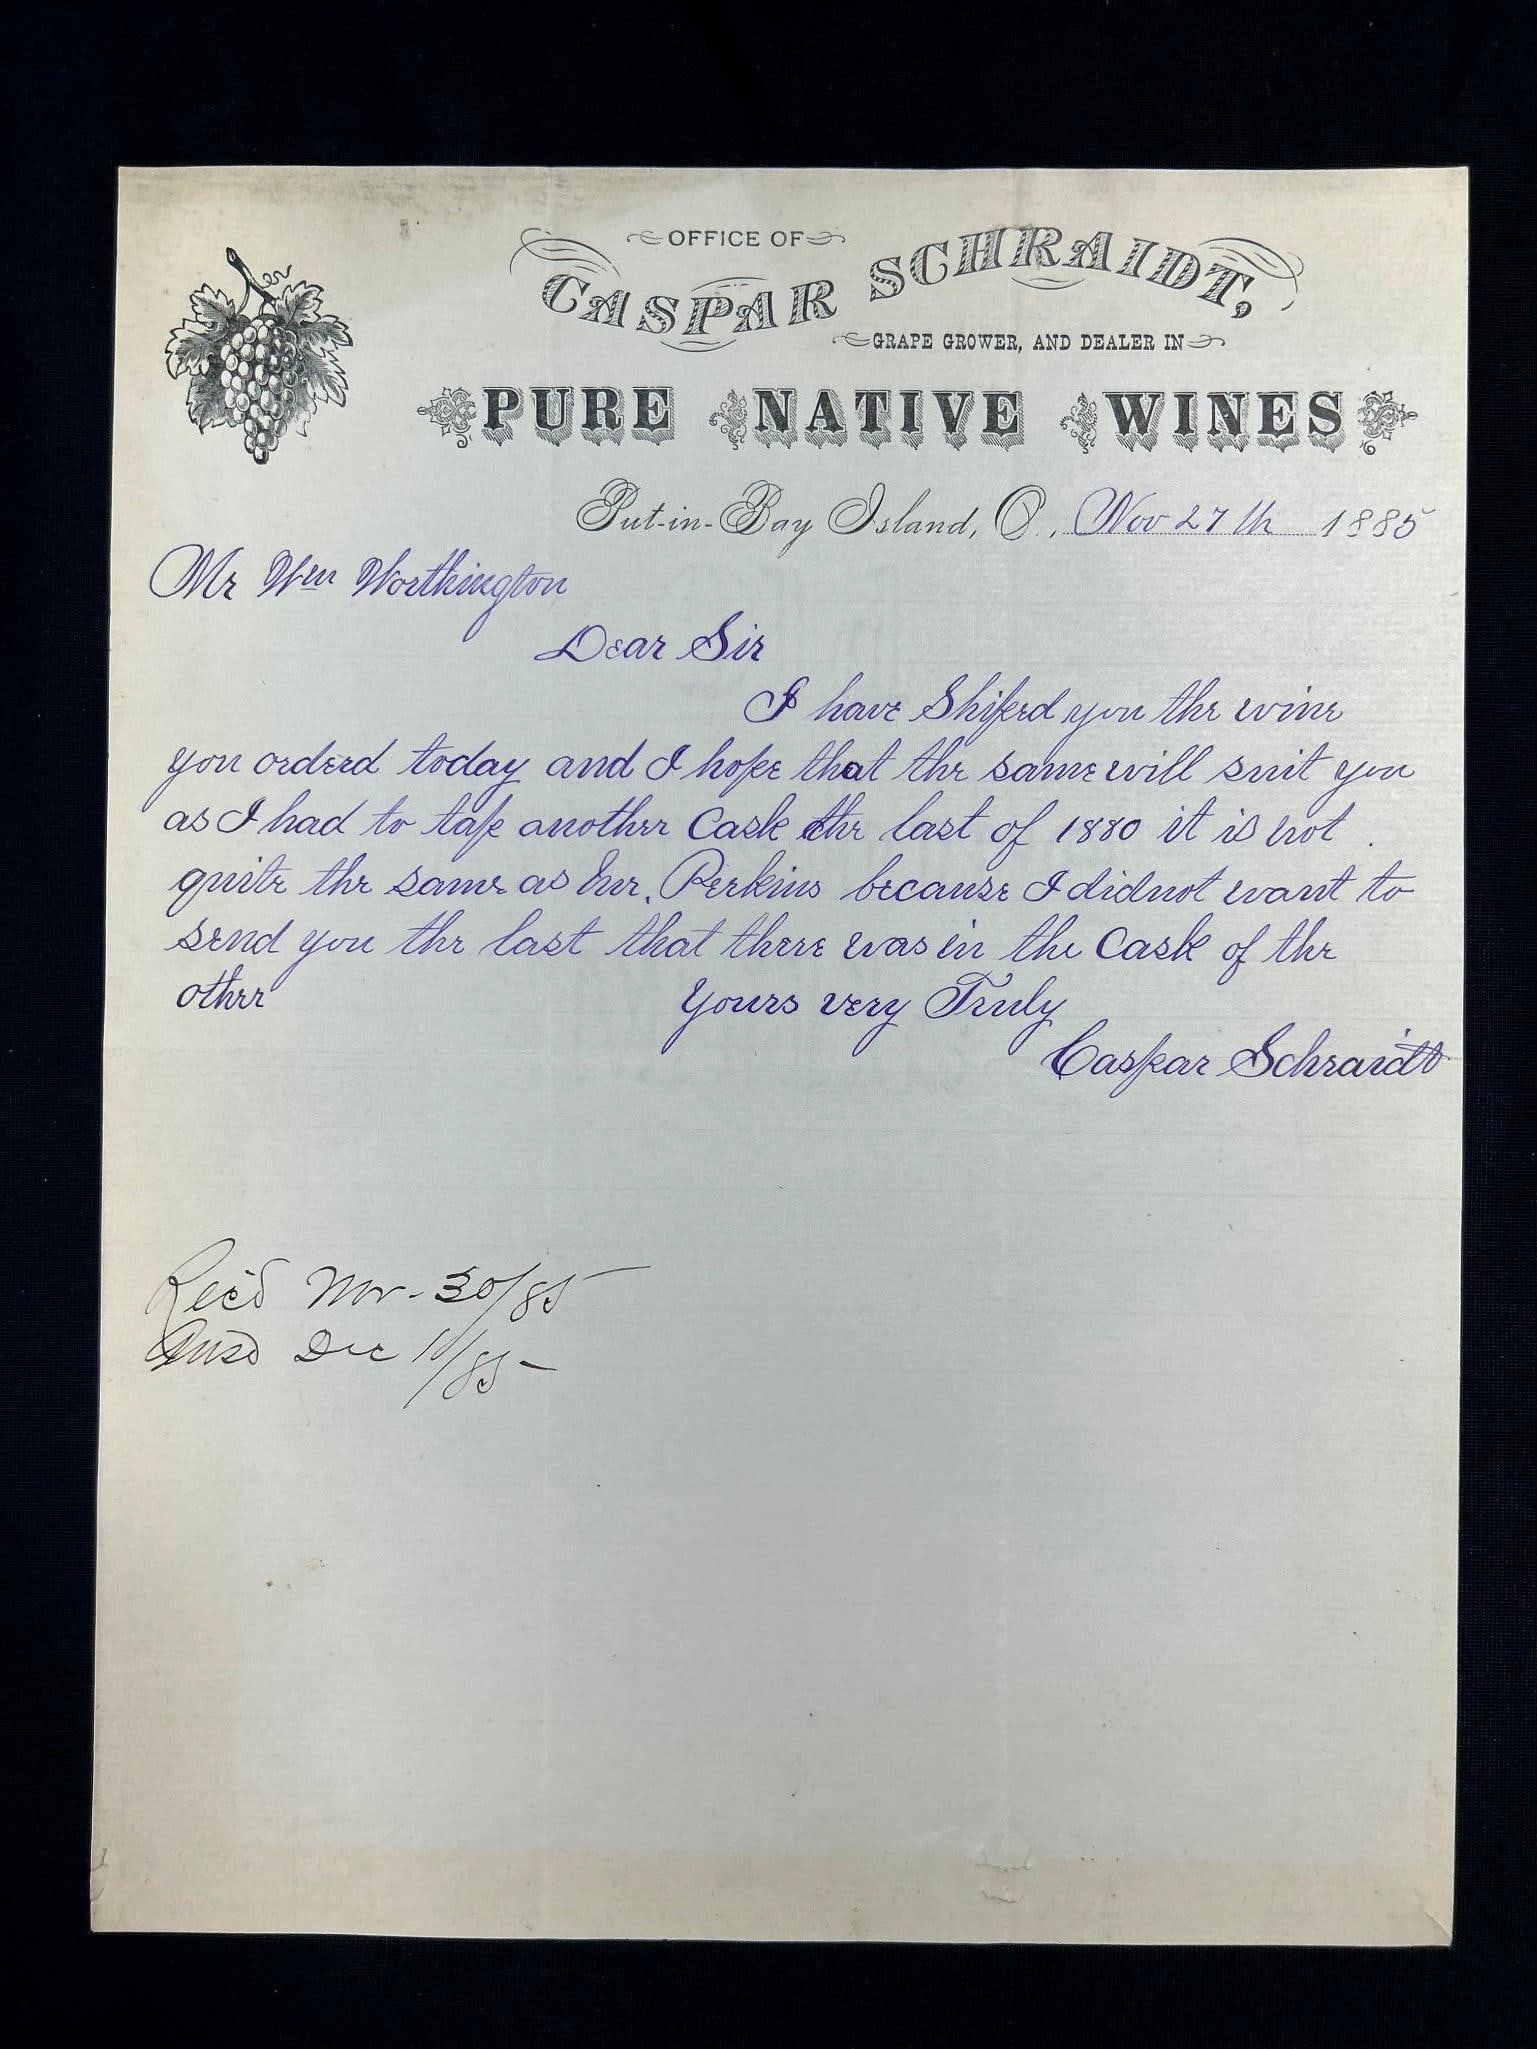 OFFICE OF
CASPAR SCHRAIDT,
GRAPE GROWER, AND DEALER IN
PURE NATIVE WINES
Put-in-Bay Island, O., Nov 27th 1885
Mr Wm Worthington
Dear Sir
I have Shiped you the wine
you orderd today and I hope that the same will suit you
as I had to tap another Cask the last of 1880 it is not
quite the same as Mr. Perkins because I didnot want to
send you the last that there was in the Cask of the
other
Yours very Truly
Caspar Schraidt
Rec'd Nov-30/85
Ansd Dec 10/85